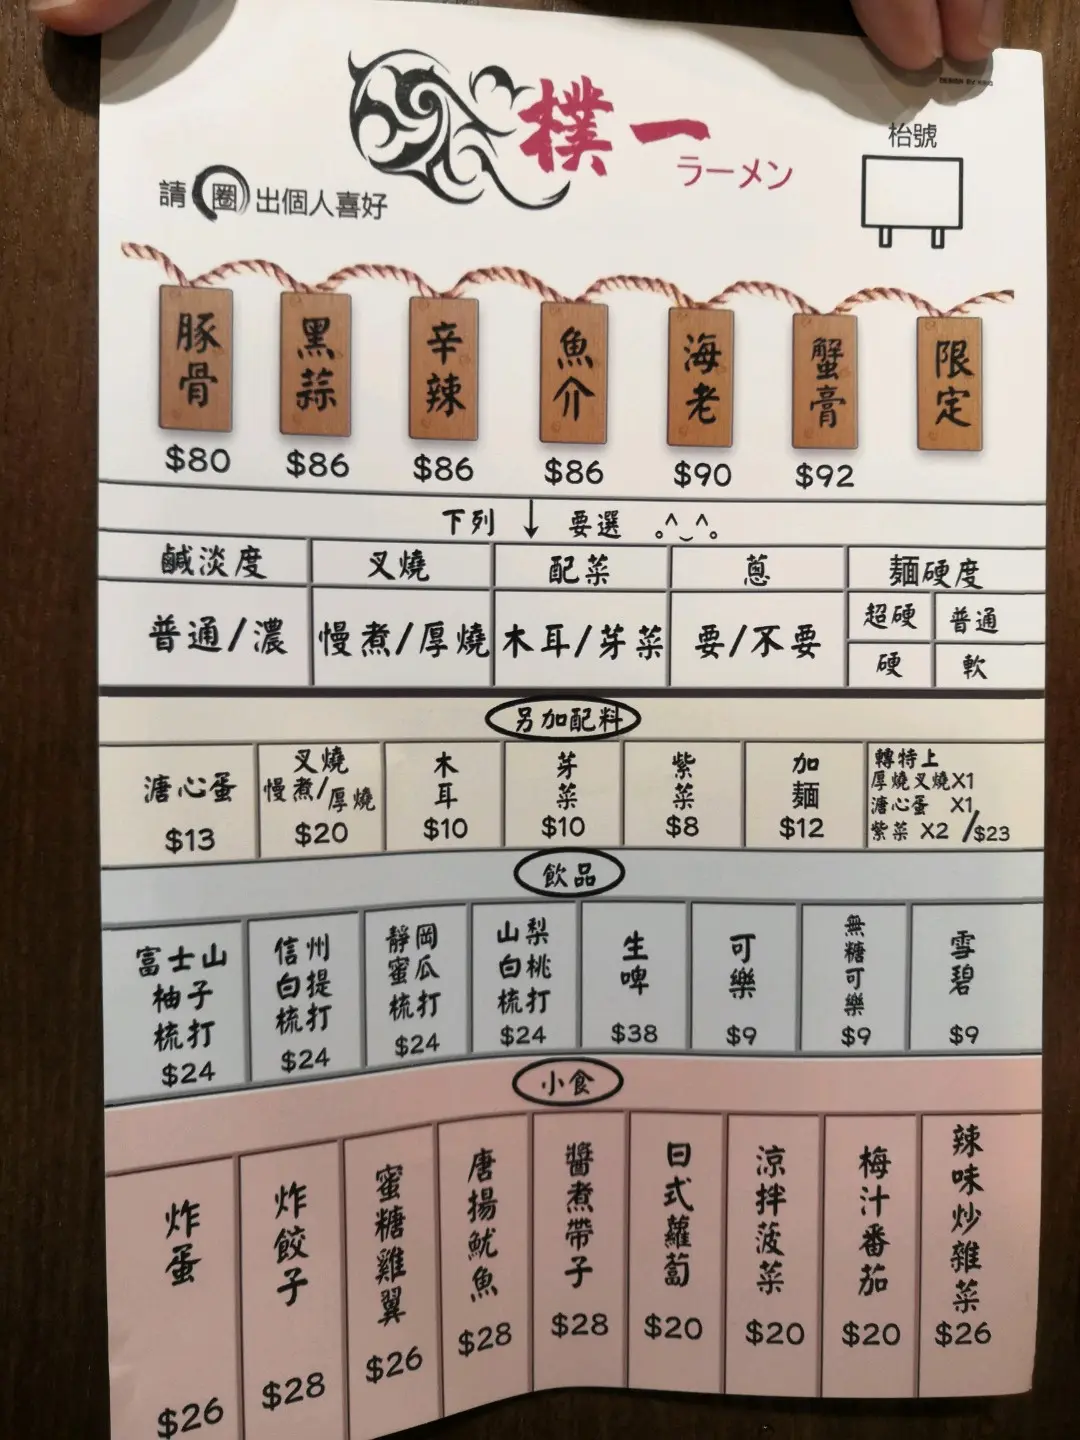 DESIGN BY KING
樸一
ラーメン
枱號
請圈出個人喜好
豚骨 $80
黑蒜 $86
辛辣 $86
魚介 $86
海老 $90
蟹膏 $92
限定
下列 ↓ 要選
鹹淡度 叉燒 配菜 蔥 麵硬度
普通/濃 慢煮/厚燒 木耳/芽菜 要/不要
超硬 普通
硬 軟
另加配料
溏心蛋 $13
叉燒
慢煮/厚燒
$20
木耳 $10
芽菜 $10
紫菜 $8
加麵 $12
轉特上
厚燒叉燒X1
溏心蛋 X1
紫菜 X2 /$23
飲品
富士山
柚子
梳打
$24
信州
白提
梳打
$24
靜岡
蜜瓜
梳打
$24
山梨
白桃
梳打
$24
生啤 $38
可樂 $9
無糖可樂 $9
雪碧 $9
小食
炸蛋 $26
炸餃子 $28
蜜糖雞翼 $26
唐揚魷魚 $28
醬煮帶子 $28
日式蘿蔔 $20
涼拌菠菜 $20
梅汁番茄 $20
辣味炒雜菜 $26